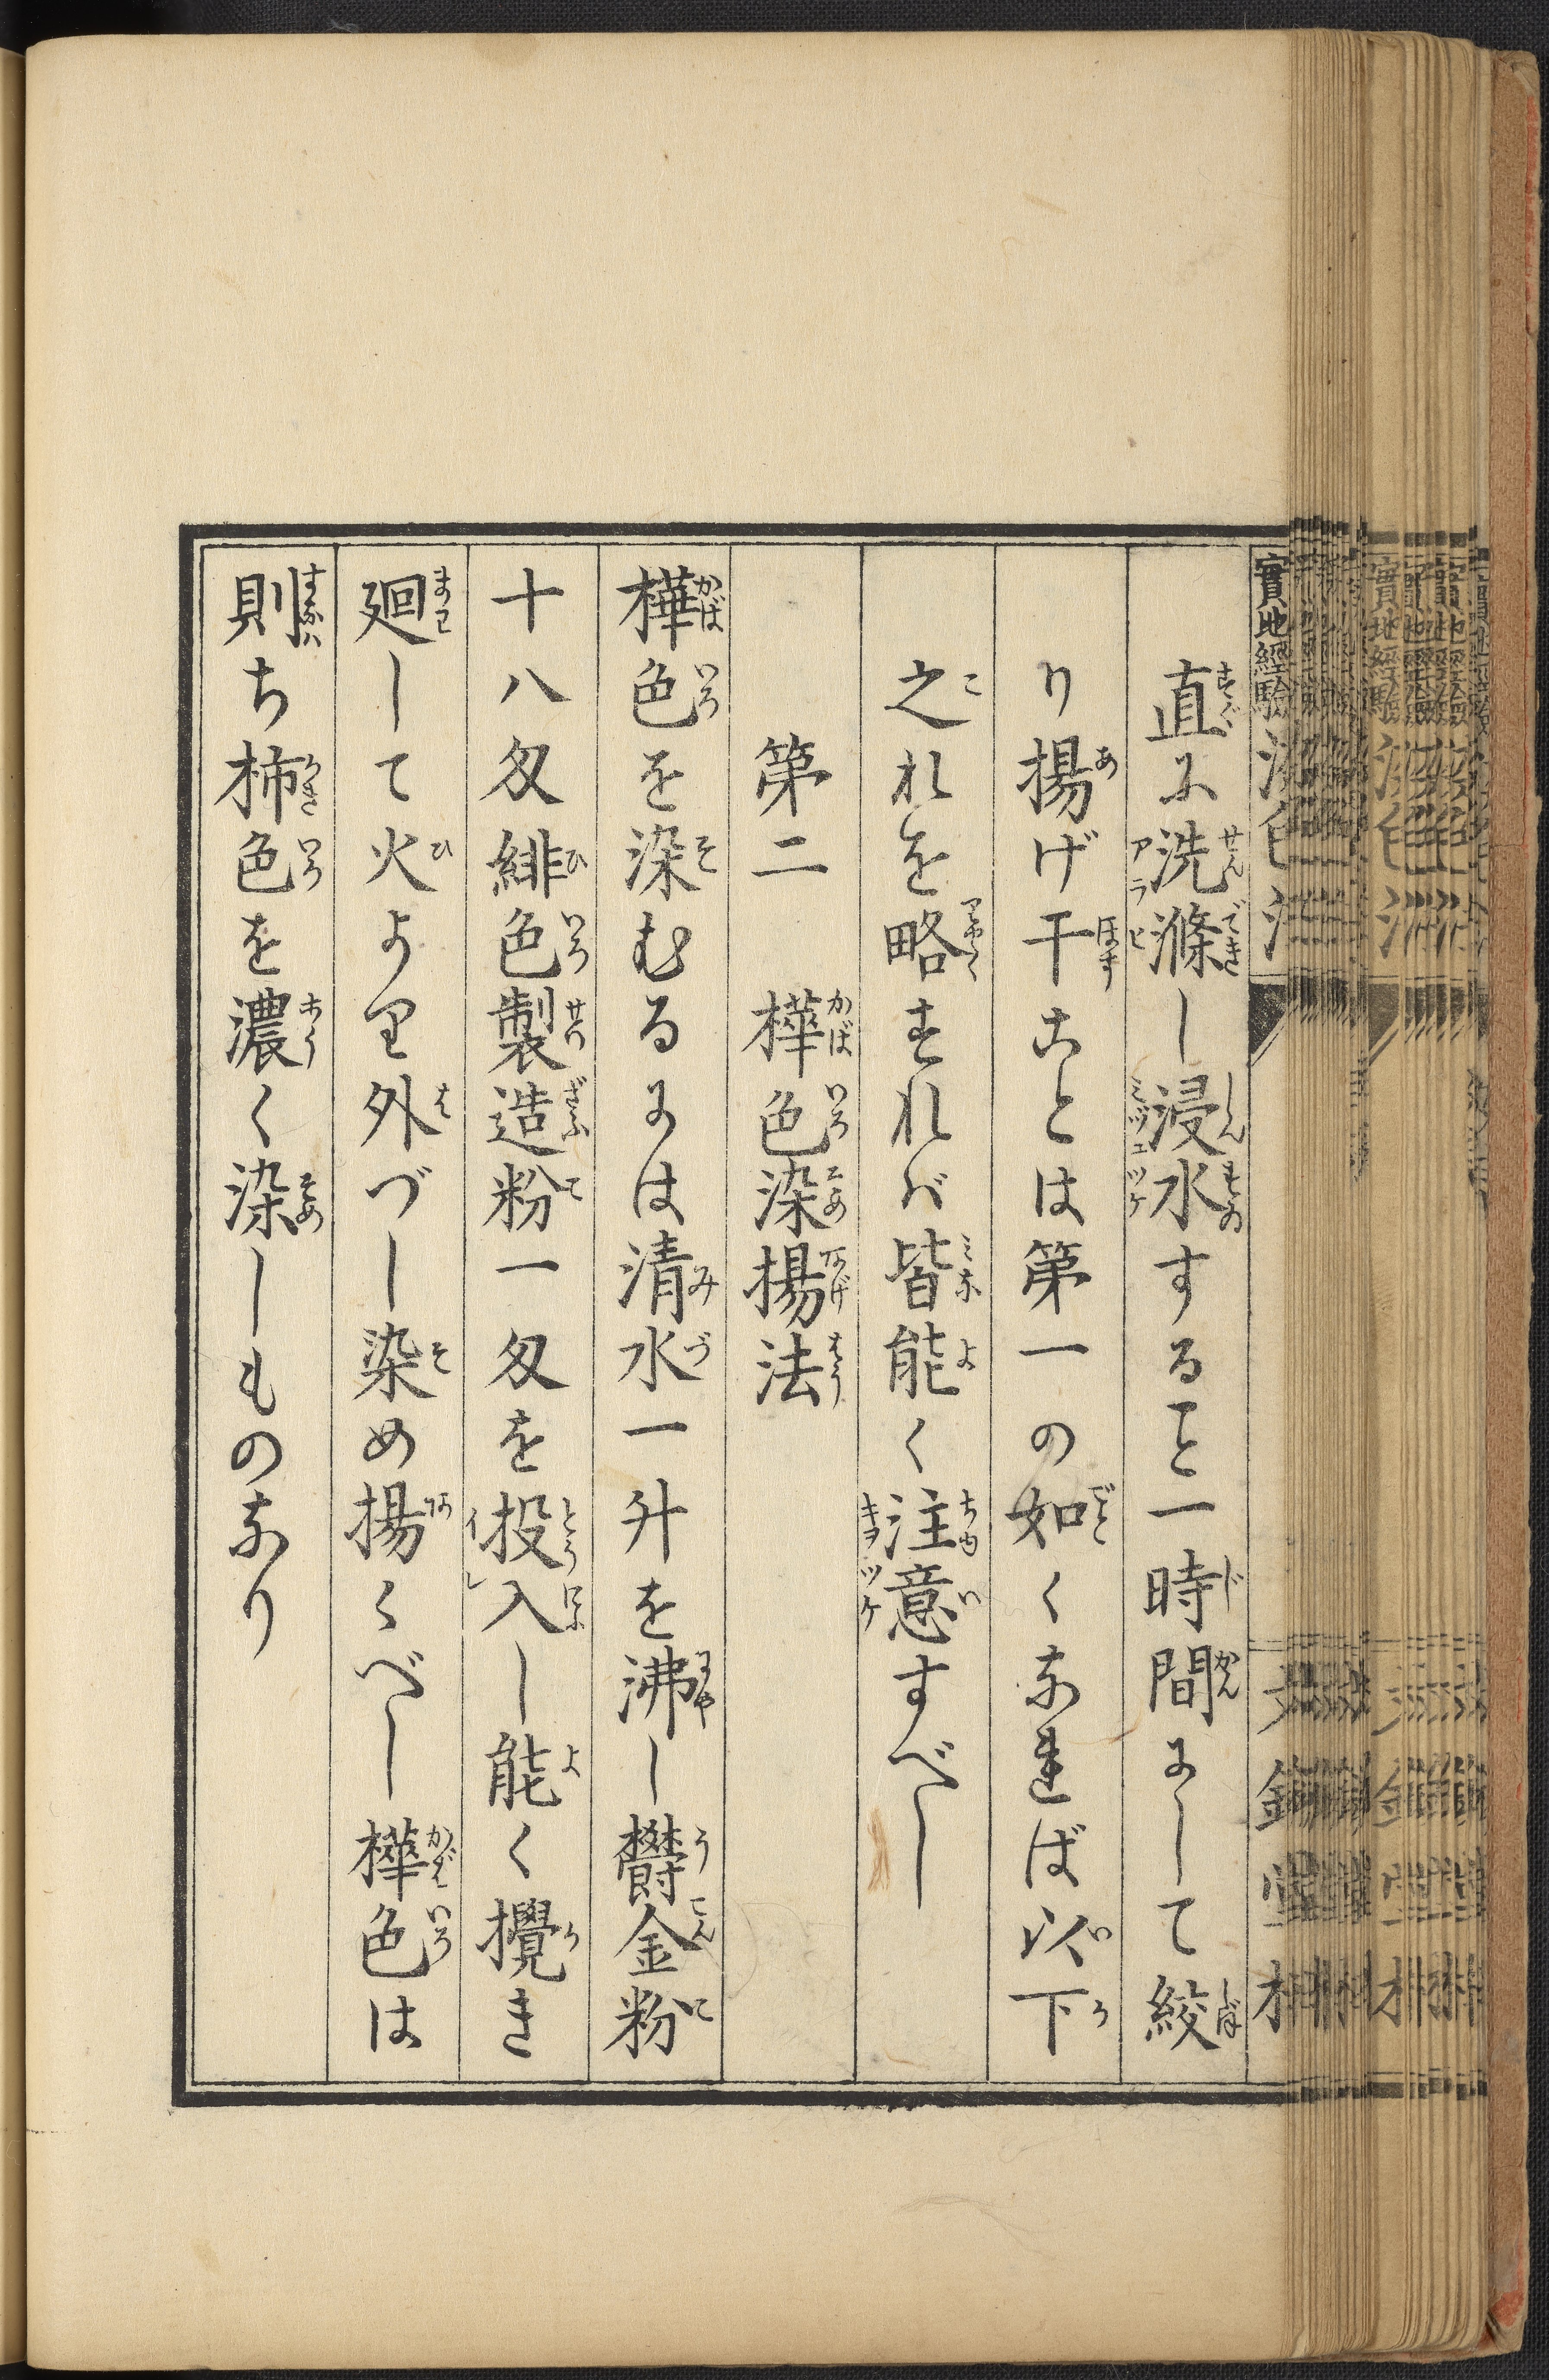 實地經驗
直に洗滌し浸水すること一時間にして絞
り揚げ干ことは第一の如くなれば以下
之れを略すれば皆能く注意すべし
第二　樺色染揚法
樺色を染むるには清水一升を沸し欝金粉
十八匁緋色製造粉一匁を投入し能く攪き
廻して火より外づし染め揚くべし樺色は
則ち柿色を濃く染しものなり